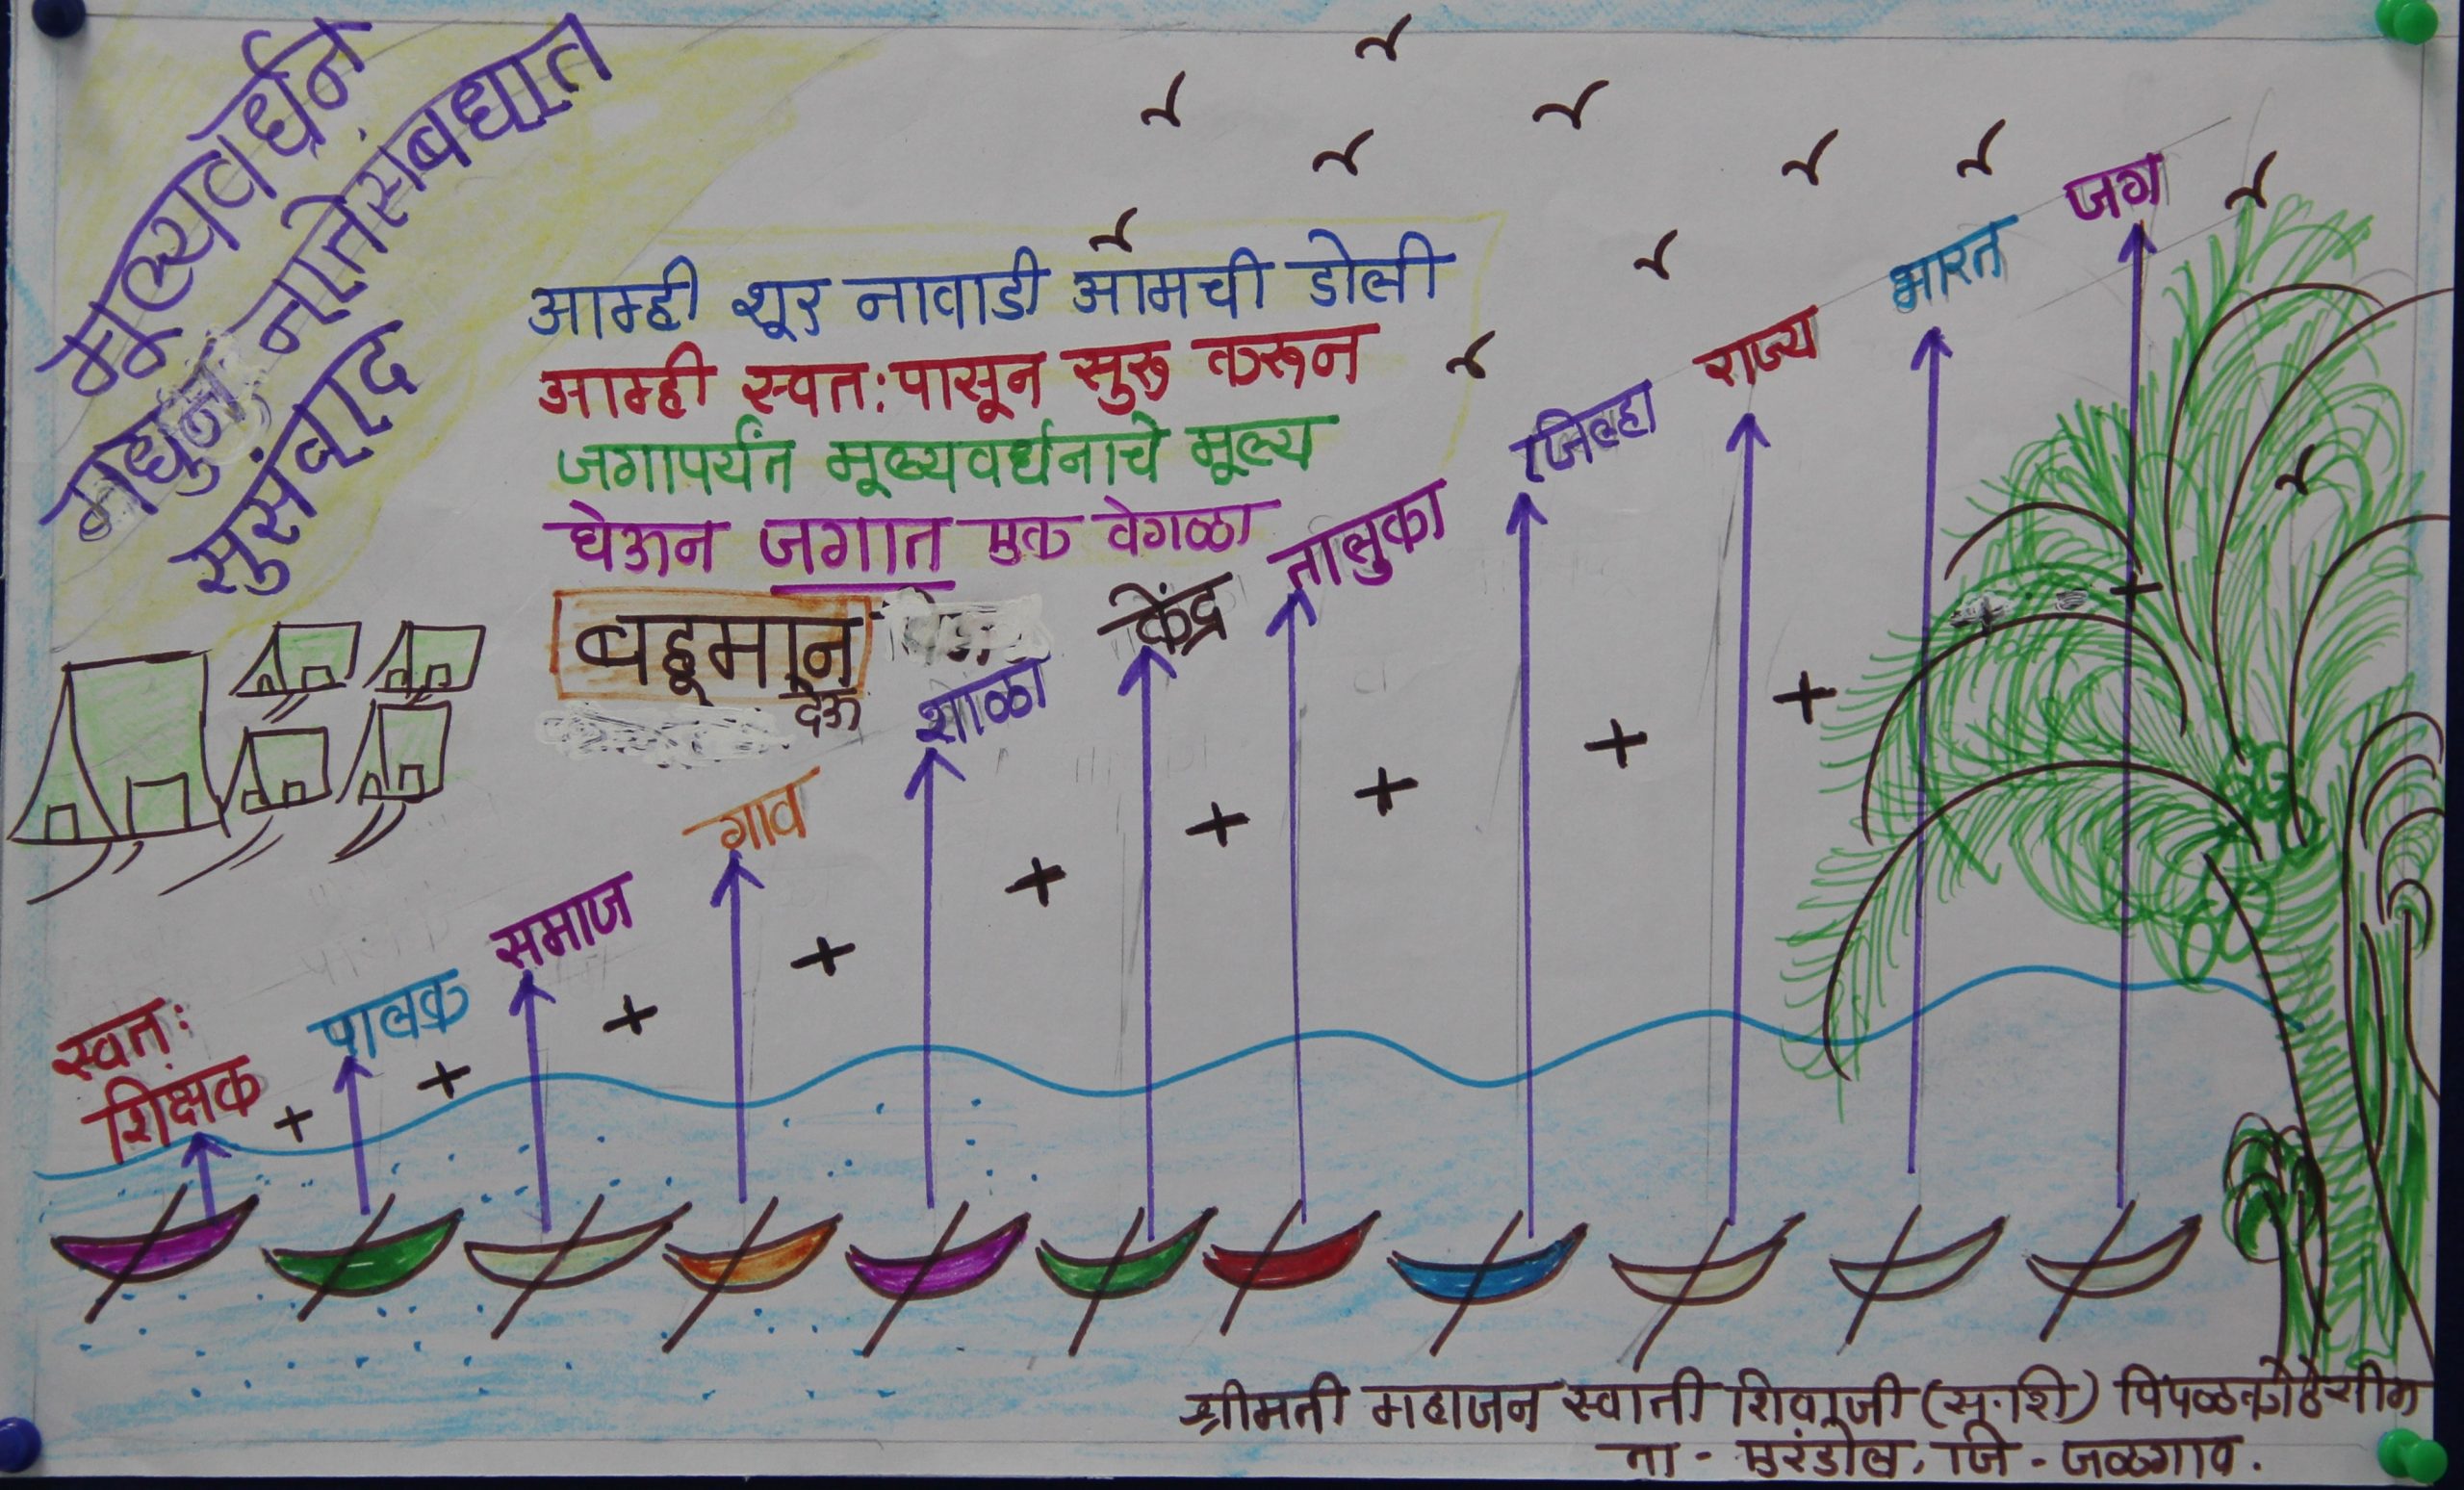 मूल्यवर्धन
मधुन नातेसंबधात
सुसंवाद
आम्ही शूर नावाडी आमची डोली
आम्ही स्वतः पासून सुरु करून
जगापर्यंत मूल्यवर्धनाचे मूल्य
घेऊन जगात एक वेगळा
बहूमान
देऊ
स्वतः
शिक्षक
+ पालक
+ समाज
+ गाव
+ शाळा
+ केंद्र
+ तालुका
+ जिल्हा
+ राज्य
+ भारत
+ जग
श्रीमती महाजन स्वाती शिवाजी (सू.शि)
ता - एरंडोल, जि - जळगाव.